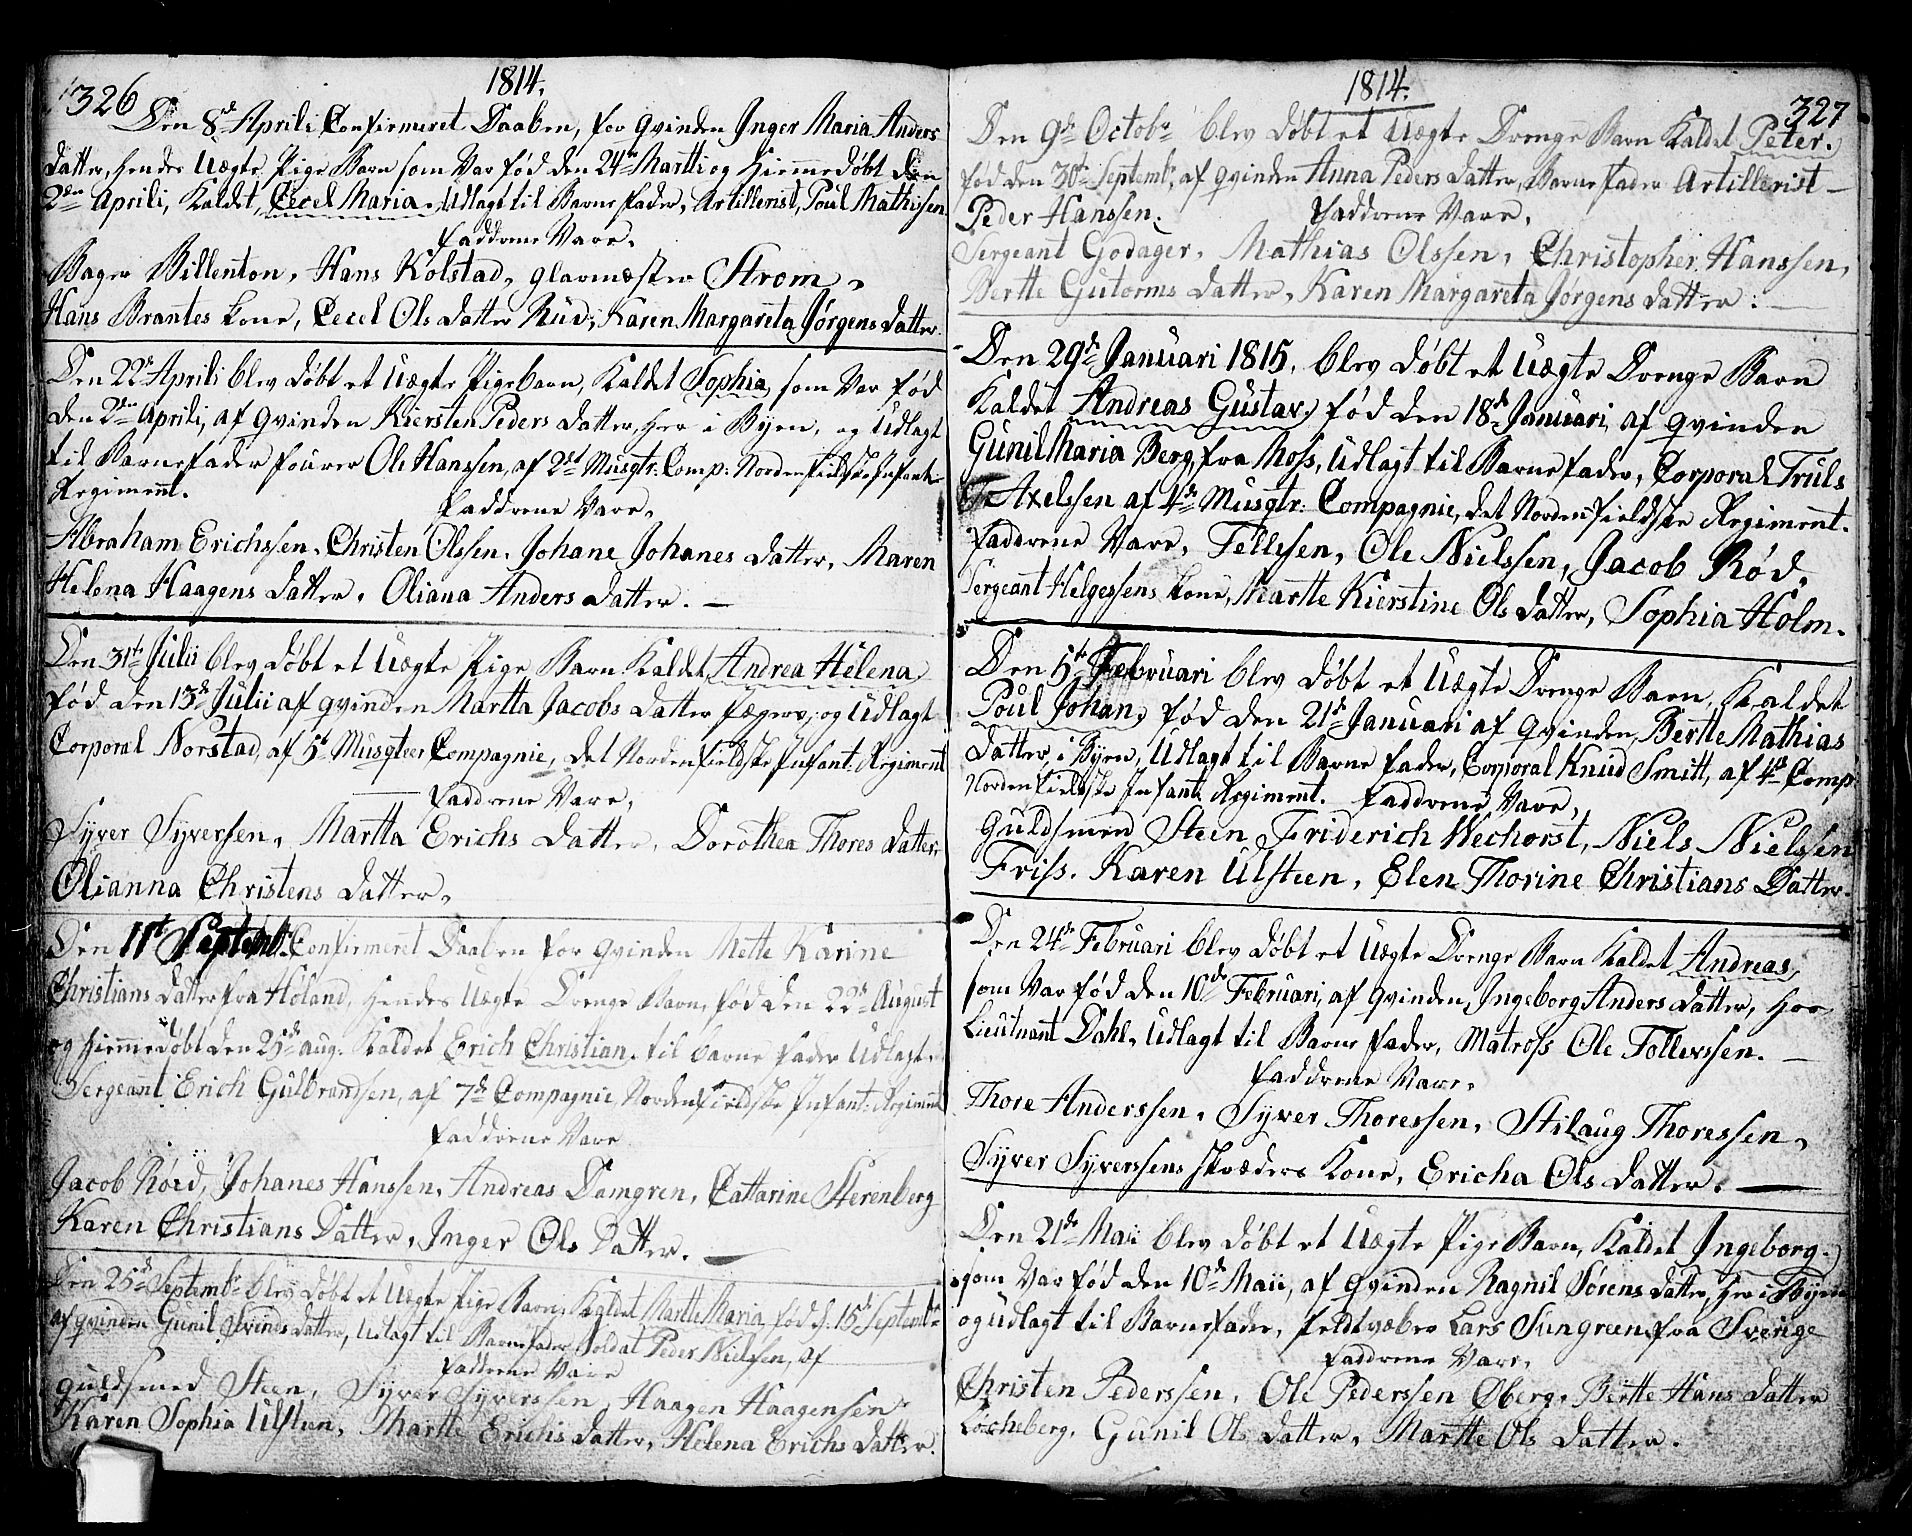 326
1814.
Den 8de Aprili Confirmeret Daaben, for qvinden Inger Maria Anders
datter, hendes Uægte Pige Barn som Var fød den 24de Martti og hiemmedøbt den
2den Aprili, Kaldet, Cecel Maria. Udlagt til Barne fader, Artillerist, Poul Mathisen
faddrene Vare.
Bager Billenton, Hans Kolstad, glarmæster Strøm,
Hans Brantes kone, Cecel Ols datter Rud, Karen Margareta Jørgens datter.
Den 22de Aprili blev døbt et Uægte Pigebarn, Kaldet Sophia, som Var fød
den 2den Aprili, af qvinden Kiersten Peders datter, her i Byen, og Udlagt
til Barnefader fourer Ole Hanssen, af 2det Musqtr: Comp: Nordenfieldske Infant:
Regiment.
faddrene Vare.
Abraham Erichssen. Christen Olssen. Johane Johanes datter, Maren
Helena Haagens datter, Oliana Anders datter. —
Den 31te Julii blev døbt et Uægte Pige Barn Kaldet Andrea Helena,
fød den 13de Julii af qvinden Martta Jacobs datter og Udlagt
Corporal Norstad, af 5te Musqteer Compagnie, det Nordenfieldske Infant: Regiment
faddrene Vare,
Syver Syversen, Martta Erichs datter, Dorothea Thores datter,
Olianna Christens datter.
Den 11te Septembr: Confirmeret Daaben for qvinden Mette Karine
Christians datter fra Høland, hendes Uægte Drenge Barn, fød den 22de August
og hiemmedøbt den 25de aug: Kaldet Erich Christian, til barne fader Udlagt
Sergeant Erich Gulbrandsen, af 7de Compagnie, Nordenfieldske Infant: Regiment
faddrene Vare
Jacob Röed, Johanes Hanssen, Andreas Damgren, Cattarine Sterenberg
Karen Christians Datter, Inger Ols Datter. —
Den 25de Septembr blev døbt et Uægte Pige Barn, Kaldet Martte Maria, fød d. 15de Septembr
af qvinden Gunil Svends datter, Udlagt til Barnefader Soldat Peder Nielsen, af
faddrene Vare
guldsmed Steen, Syver Syverssen, Haagen Haagensen
Karen Sophia Ulsteen, Martte Erichs datter, Helena Erichs datter.
1814.
327
Den 9de Octobr blev døbt et Uægte Drenge Barn Kaldet Peter.
fød den 30te Septembr, af qvinden Anna Peders datter, Barnefader Artillerist —
Peder Hanssen.
faddrene Vare,
Sergeant Godager, Mathias Olssen, Christopher Hanssen,
Bertte Gutorms datter, Karen Margareta Jørgens datter: —
Den 29de Januari 1815. blev døbt et Uægte Drenge Barn
Kaldet Andreas Gustav, fød den 18de Januari, af qvinden
Gunil Maria Berg, fra Moss, Udlagt til Barne fader, Corporal Truls
Axelssen af 4de Musqtr: Compagnie, det Nordenfieldske Regiment.
faddrene Vare, Tellesen, Ole Nielssen, Jacob Rød,
Sergeant Helgessens kone, Martte Kierstine Ols datter, Sophia Holm.
Den 5te Februari blev døbt et Uægte Drenge Barn, Kaldet
Poul Johan, fød den 21de Januari af qvinden, Bertte Mathias
datter, i Byen, Udlagt til Barne fader, Corporal Knud Smitt, af 4de Comp
Nordenfieldske Infant: Regiment. faddrene Vare,
Guldsmed Steen, Friderich Wechorst, Niels Nielssen
Friss. Karen Ulsteen, Elen Thorine Christians Datter.
Den 24de Februari blev døbt et Uægte Drenge Barn Kaldet Andreas,
som Var fød den 10de Februari, af qvinden, Ingeborg Anders datter, hos
Lieutnant Dahl, Udlagt til Barne fader, Matross Ole Tollefssen. —
faddrene Vare,
Thore Anderssen, Syver Thoressen, Stilaug Thoressen,
Syver Syverssens skræders Kone, Ericha Ols datter. —
Den 21de Maii blev døbt et Uægte Pige Barn, Kaldet Ingeborg.
som Var fød den 10de Maii, af qvinden Ragnil Sørens datter, her i Byen
og udlagt til Barnefader, feldtvæber Lars Sungreen, fra Sverige
faddrene Vare,
Christen Pederssen, Ole Pederssen Øberg, Bertte Hans datter
Løcheberg, Gunil Ols datter, Martte Ols datter.